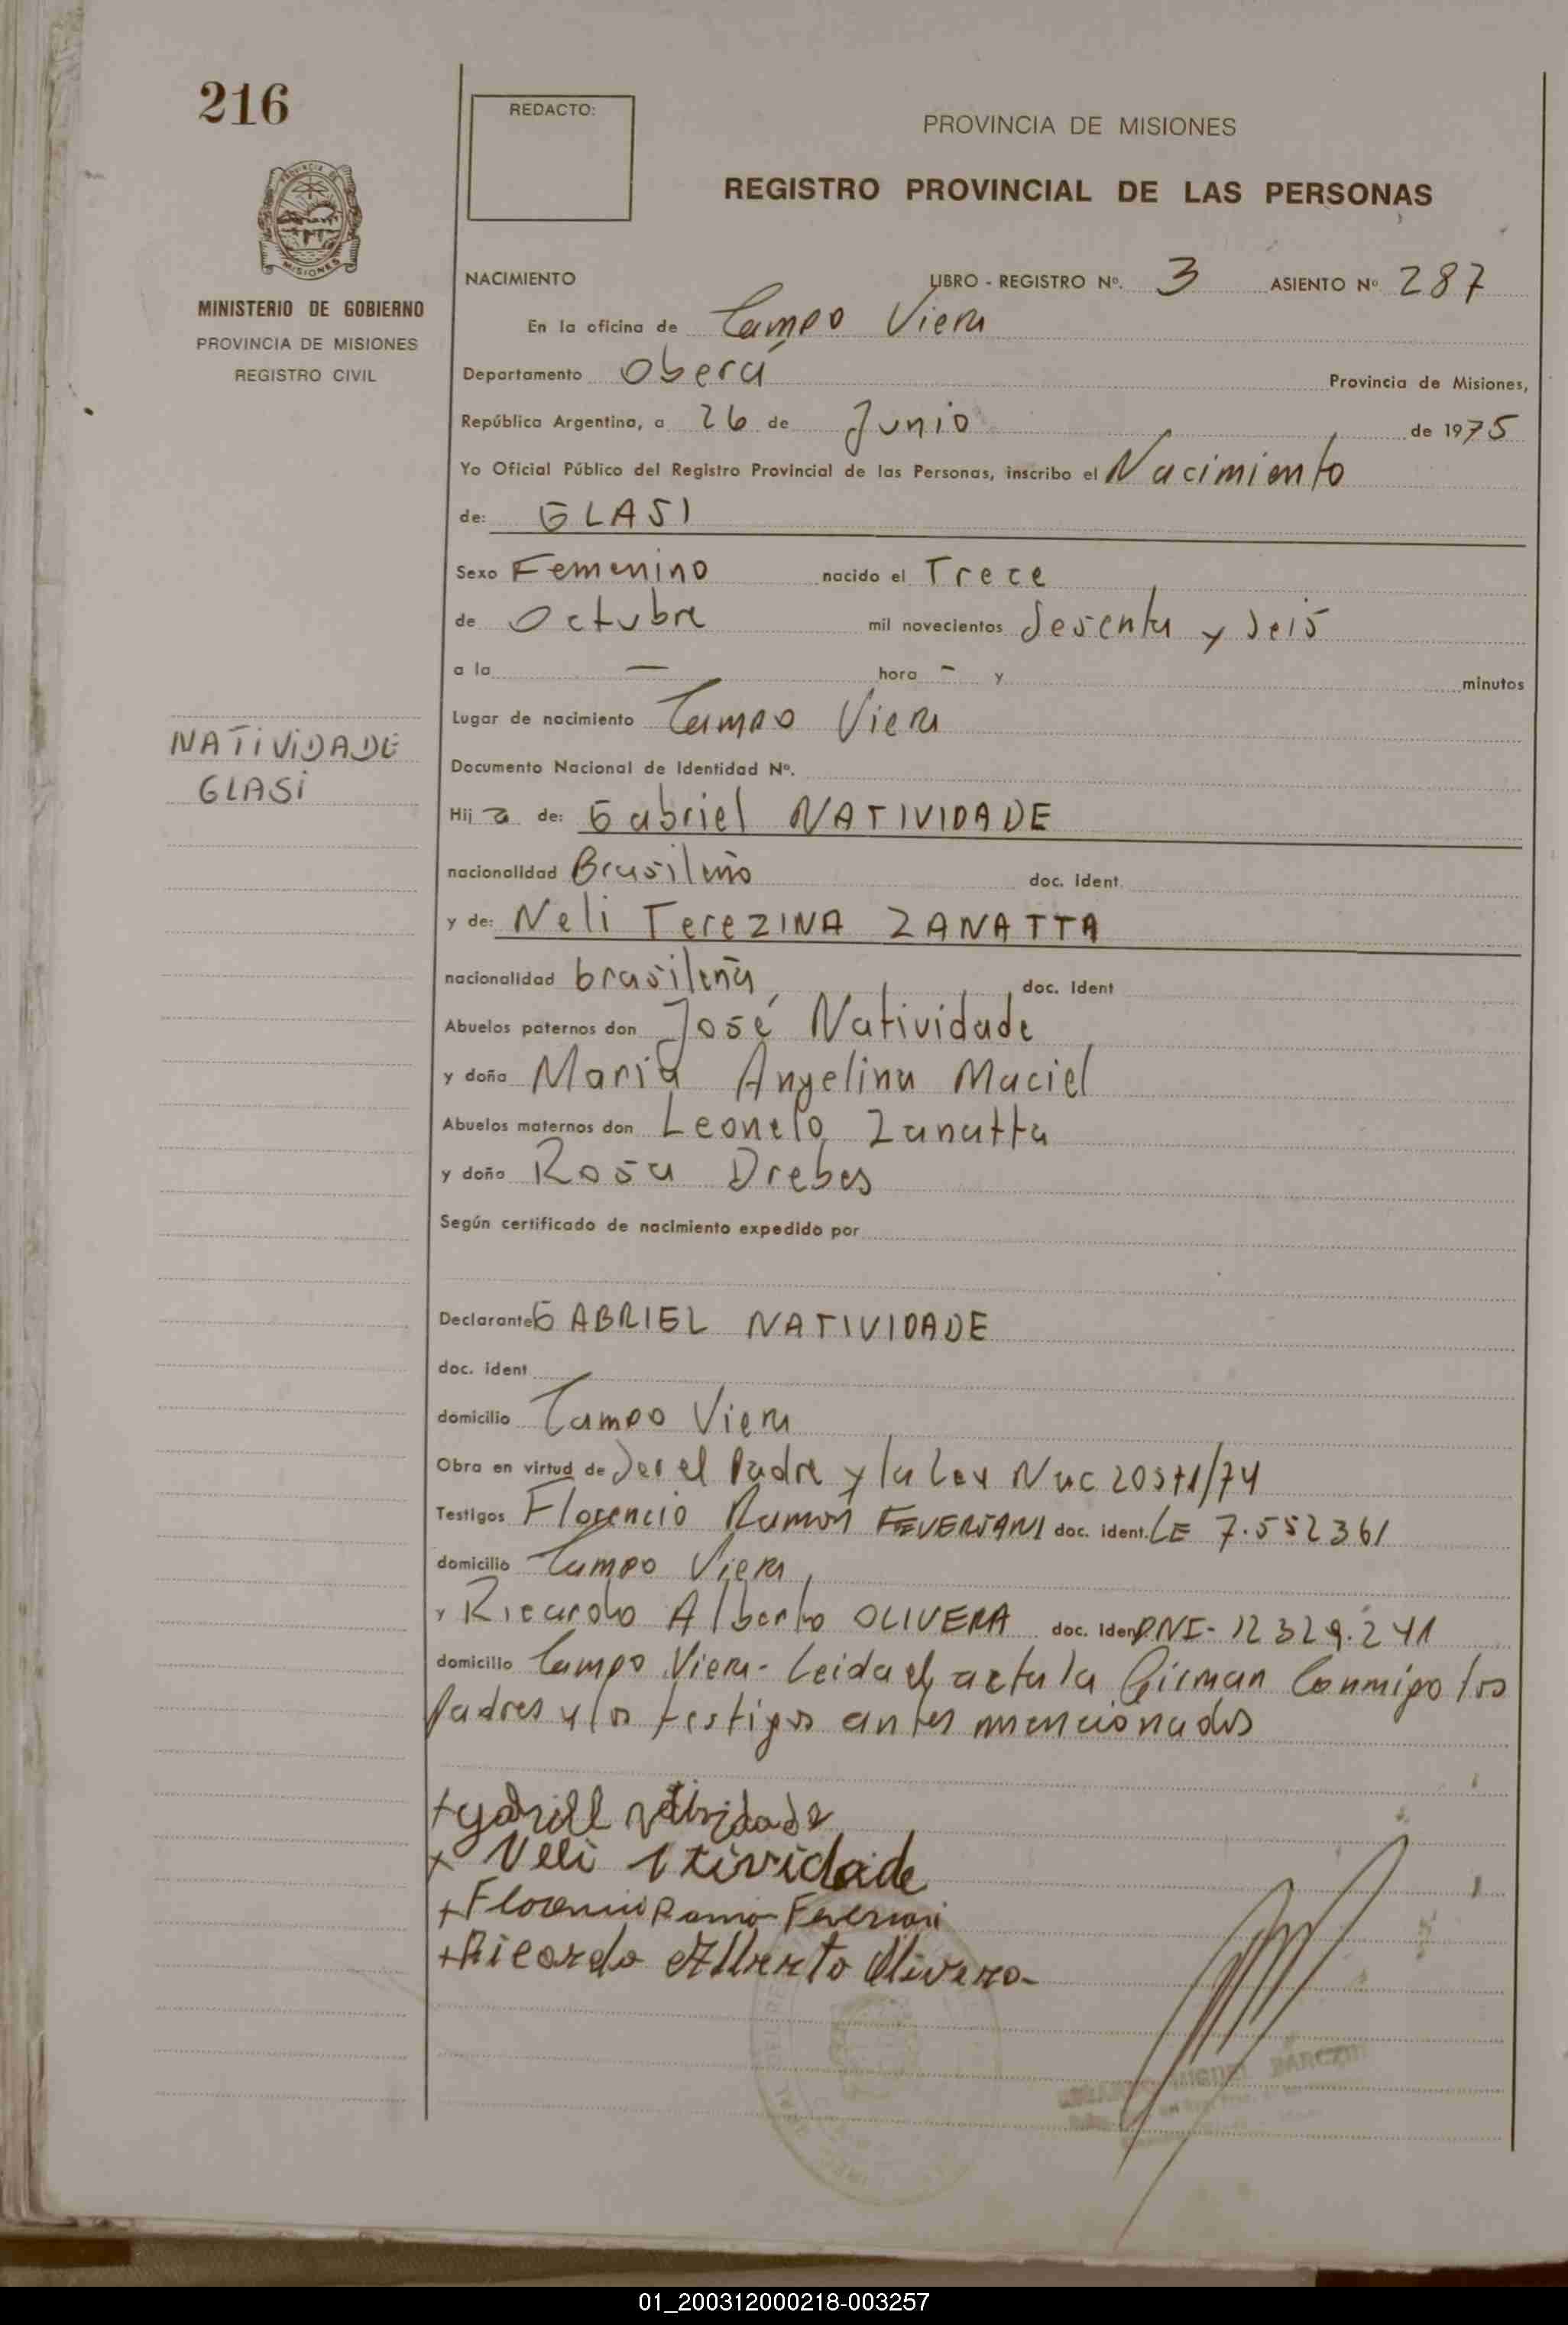 216
REDACTO:
PROVINCIA DE MISIONES
REGISTRO PROVINCIAL DE LAS PERSONAS
MISIONES
MINISTERIO DE GOBIERNO
PROVINCIA DE MISIONES
REGISTRO CIVIL
NACIMIENTO LIBRO - REGISTRO Nº. 3 ASIENTO Nº 287
En la oficina de Campo Viera
Departamento Oberá Provincia de Misiones,
República Argentina, a 26 de Junio de 1975
Yo Oficial Público del Registro Provincial de las Personas, inscribo el Nacimiento
de: GLASI
Sexo Femenino nacido el Trece
de Octubre mil novecientos sesenta y seis
a la — hora - y minutos
Lugar de nacimiento Campo Viera
NATIVIDADE
GLASI
Documento Nacional de Identidad Nº.
Hij a de: Gabriel NATIVIDADE
nacionalidad Brasileño doc. Ident.
y de: Neli TereZINA ZANATTA
nacionalidad brasileña doc. Ident
Abuelos paternos don José Natividade
y doña Maria Angelina Maciel
Abuelos maternos don Leonelo Zanatta
y doña Rosa Drebes
Según certificado de nacimiento expedido por
Declarante GABRIEL NATIVIDADE
doc. ident
domicilio Campo Viera
Obra en virtud de Ser el Padre y la Ley Nac 20571/74
Testigos Florencio Ramon FEVERSANI doc. ident. LE 7.552361
domicilio Campo Viera,
y Ricardo Alberto OLIVERA doc. Iden DNI- 12329.241
domicilio Campo Viera- Leida el acta la firman Conmigo los
Padres y los testigos antes mencionados
+ gabriell natividade
x Neli Natividade
+ Florencio Ramon Feversani
+ Ricardo Alberto Olivera-
MIGUEL
01_200312000218-003257